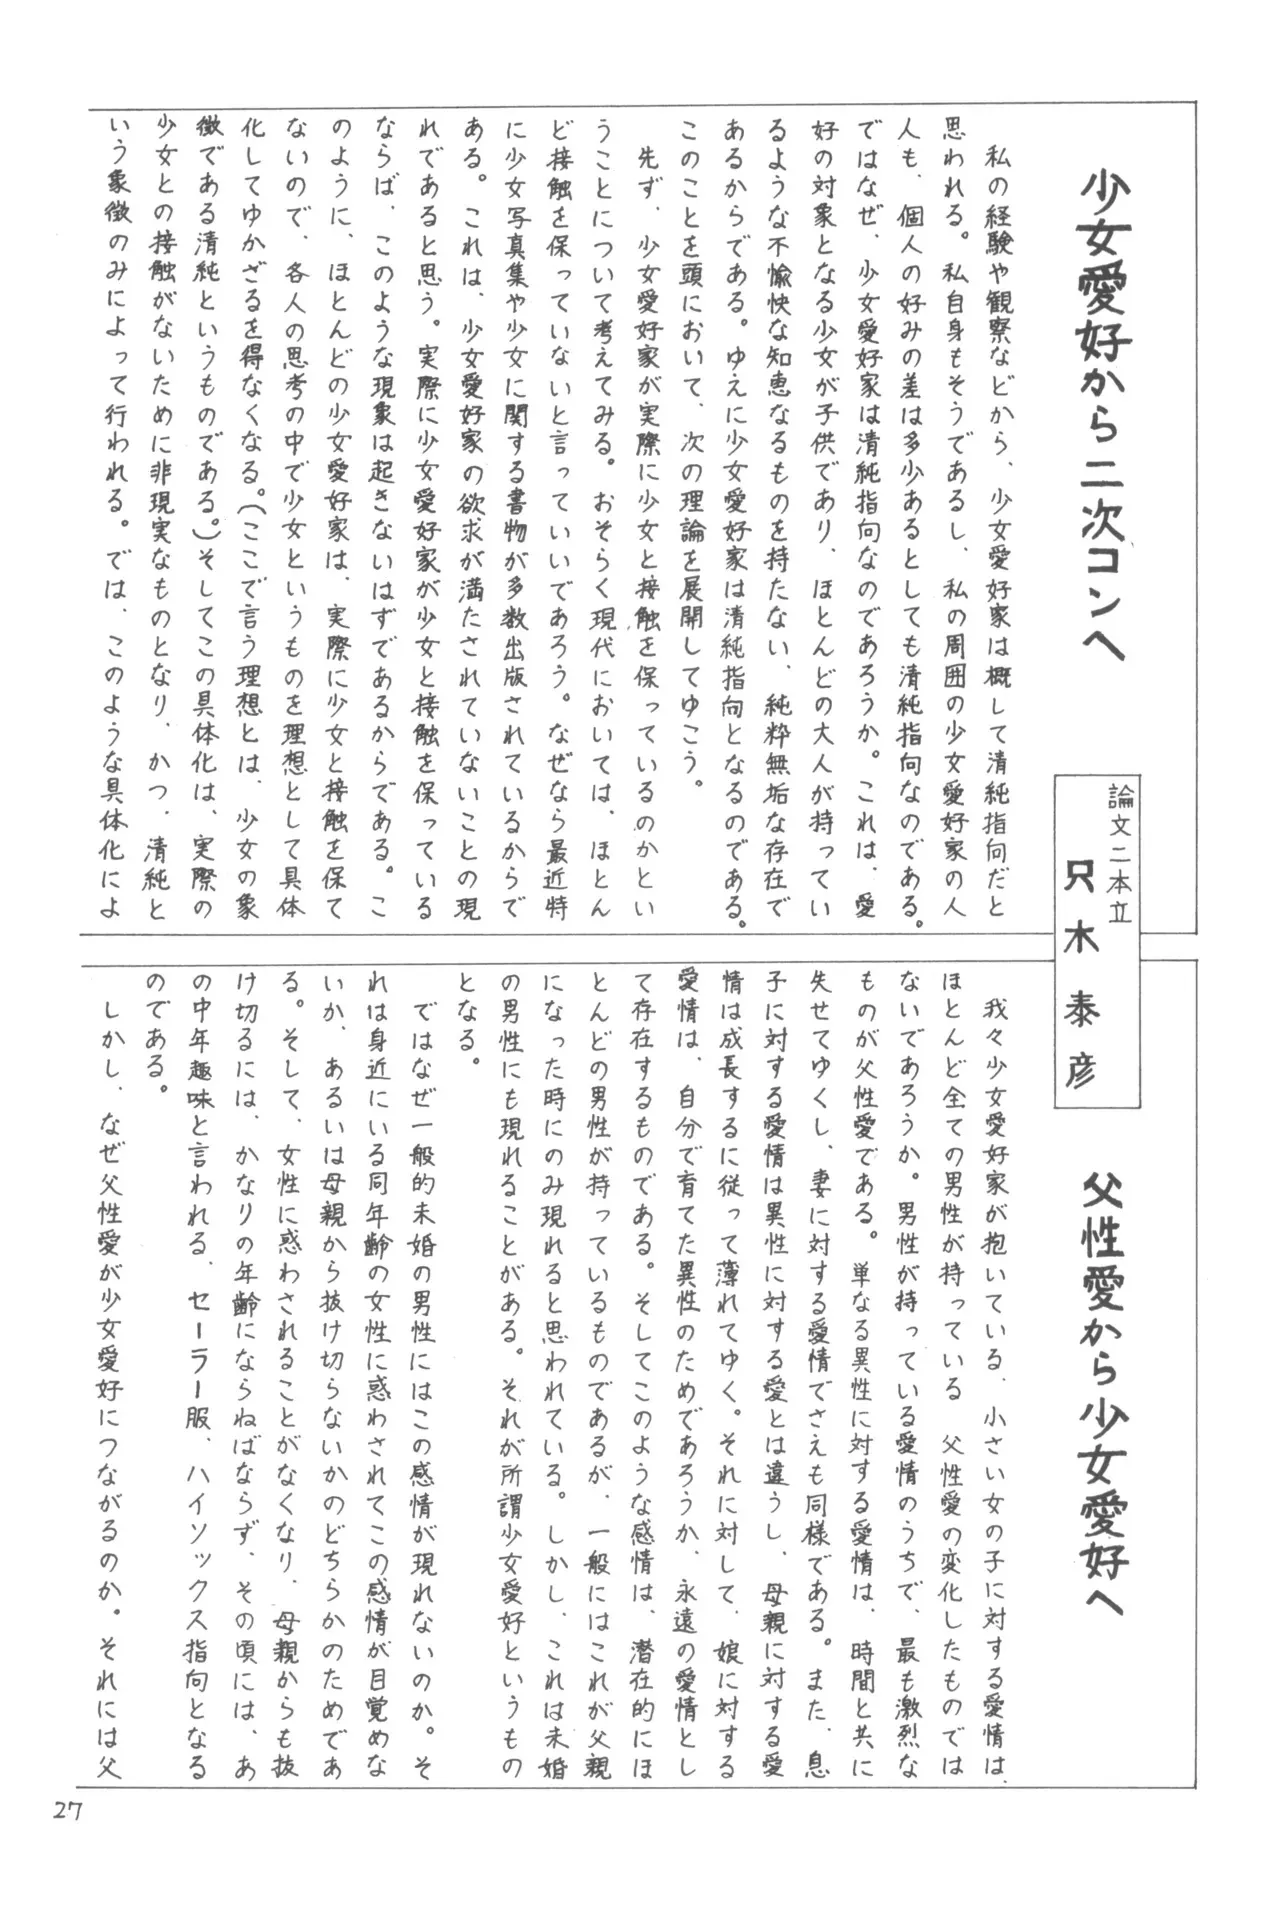 少女愛好から二次コンへ
論文二本立
只木泰彦
私の経験や観察などから、少女愛好家は概して清純指向だと
思われる。私自身もそうであるし、私の周囲の少女愛好家の人
人も、個人の好みの差は多少あるとしても清純指向なのである。
ではなぜ、少女愛好家は清純指向なのであろうか。これは、愛
好の対象となる少女が子供であり、ほとんどの大人が持ってい
るような不愉快な知恵なるものを持たない、純粋無垢な存在で
あるからである。ゆえに少女愛好家は清純指向となるのである。
このことを頭において、次の理論を展開してゆこう。
先ず、少女愛好家が実際に少女と接触を保っているのかとい
うことについて考えてみる。おそらく現代においては、ほとん
ど接触を保っていないと言っていいであろう。なぜなら最近特
に少女写真集や少女に関する書物が多数出版されているからで
ある。これは、少女愛好家の欲求が満たされていないことの現
れであると思う。実際に少女愛好家が少女と接触を保っている
ならば、このような現象は起きないはずであるからである。こ
のように、ほとんどの少女愛好家は、実際に少女と接触を保て
ないので、各人の思考の中で少女というものを理想として具体
化してゆかざるを得なくなる。(ここで言う理想とは、少女の象
徴である清純というものである。)そしてこの具体化は、実際の
少女との接触がないために非現実なものとなり、かつ、清純と
いう象徴のみによって行われる。では、このような具体化によ
父性愛から少女愛好へ
我々少女愛好家が抱いている、小さい女の子に対する愛情は、
ほとんど全ての男性が持っている 父性愛の変化したものでは
ないであろうか。男性が持っている愛情のうちで、最も激烈な
ものが父性愛である。単なる異性に対する愛情は、時間と共に
失せてゆくし、妻に対する愛情でさえも同様である。また、息
子に対する愛情は異性に対する愛とは違うし、母親に対する愛
情は成長するに従って薄れてゆく。それに対して、娘に対する
愛情は、自分で育てた異性のためであろうか、永遠の愛情とし
て存在するものである。そしてこのような感情は、潜在的にほ
とんどの男性が持っているものであるが、一般にはこれが父親
になった時にのみ現れると思われている。しかし、これは未婚
の男性にも現れることがある。それが所謂少女愛好というもの
となる。
ではなぜ一般的未婚の男性にはこの感情が現れないのか。そ
れは身近にいる同年齢の女性に惑わされてこの感情が目覚めな
いか、あるいは母親から抜け切らないかのどちらかのためであ
る。そして、女性に惑わされることがなくなり、母親からも抜
け切るには、かなりの年齢にならねばならず、その頃には、あ
の中年趣味と言われる、セーラー服、ハイソックス指向となる
のである。
しかし、なぜ父性愛が少女愛好につながるのか。それには父
27